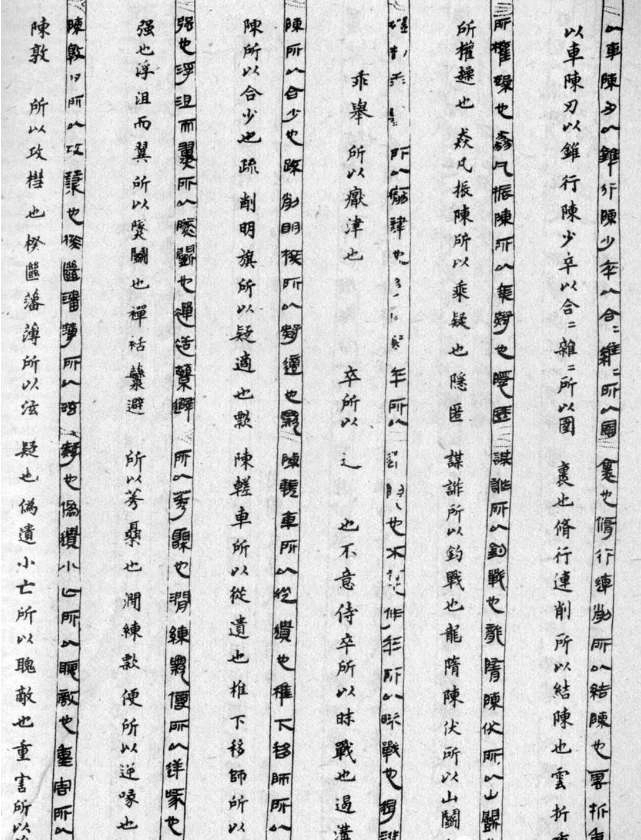 以車陳刃以錐行陳少卒以合二雜二所以圉裏也脩行連削所以結陳也雲折
以車陳刃以錐行陳少卒以合二雜二所以圉裏也脩行連削所以結陳也雲折
所權趮也猋凡振陳所以乘疑也隱匿謀詐所以釣戰也龍隋陳伏所以山鬬
所權趮也猋凡振陳所以乘疑也隱匿謀詐所以釣戰也龍隋陳伏所以山鬬
所以 津也 卒所以 也不意侍卒所以昧戰也遏溝
乖舉 所以 津也 卒所以 辶 也不意侍卒所以昧戰也遏溝
陳所以合少也疏削明旗所以疑適也 陳 車所以從遺也椎下移師所以
陳所以合少也疏削明旗所以疑適也 陳 車所以從遺也椎下移師所以
强也浮沮而翼所以 鬬也 避所以莠 也澗練 便所以逆喙也
强也浮沮而翼所以 鬬也禪 避 所以莠 也澗練 便所以逆喙也
陳敦 所以攻槥也 藩薄所以 疑也偽遺小亡所以聭敵也重害所以
陳敦 所以攻槥也 藩薄所以泫 疑也偽遺小亡所以聭敵也重害所以